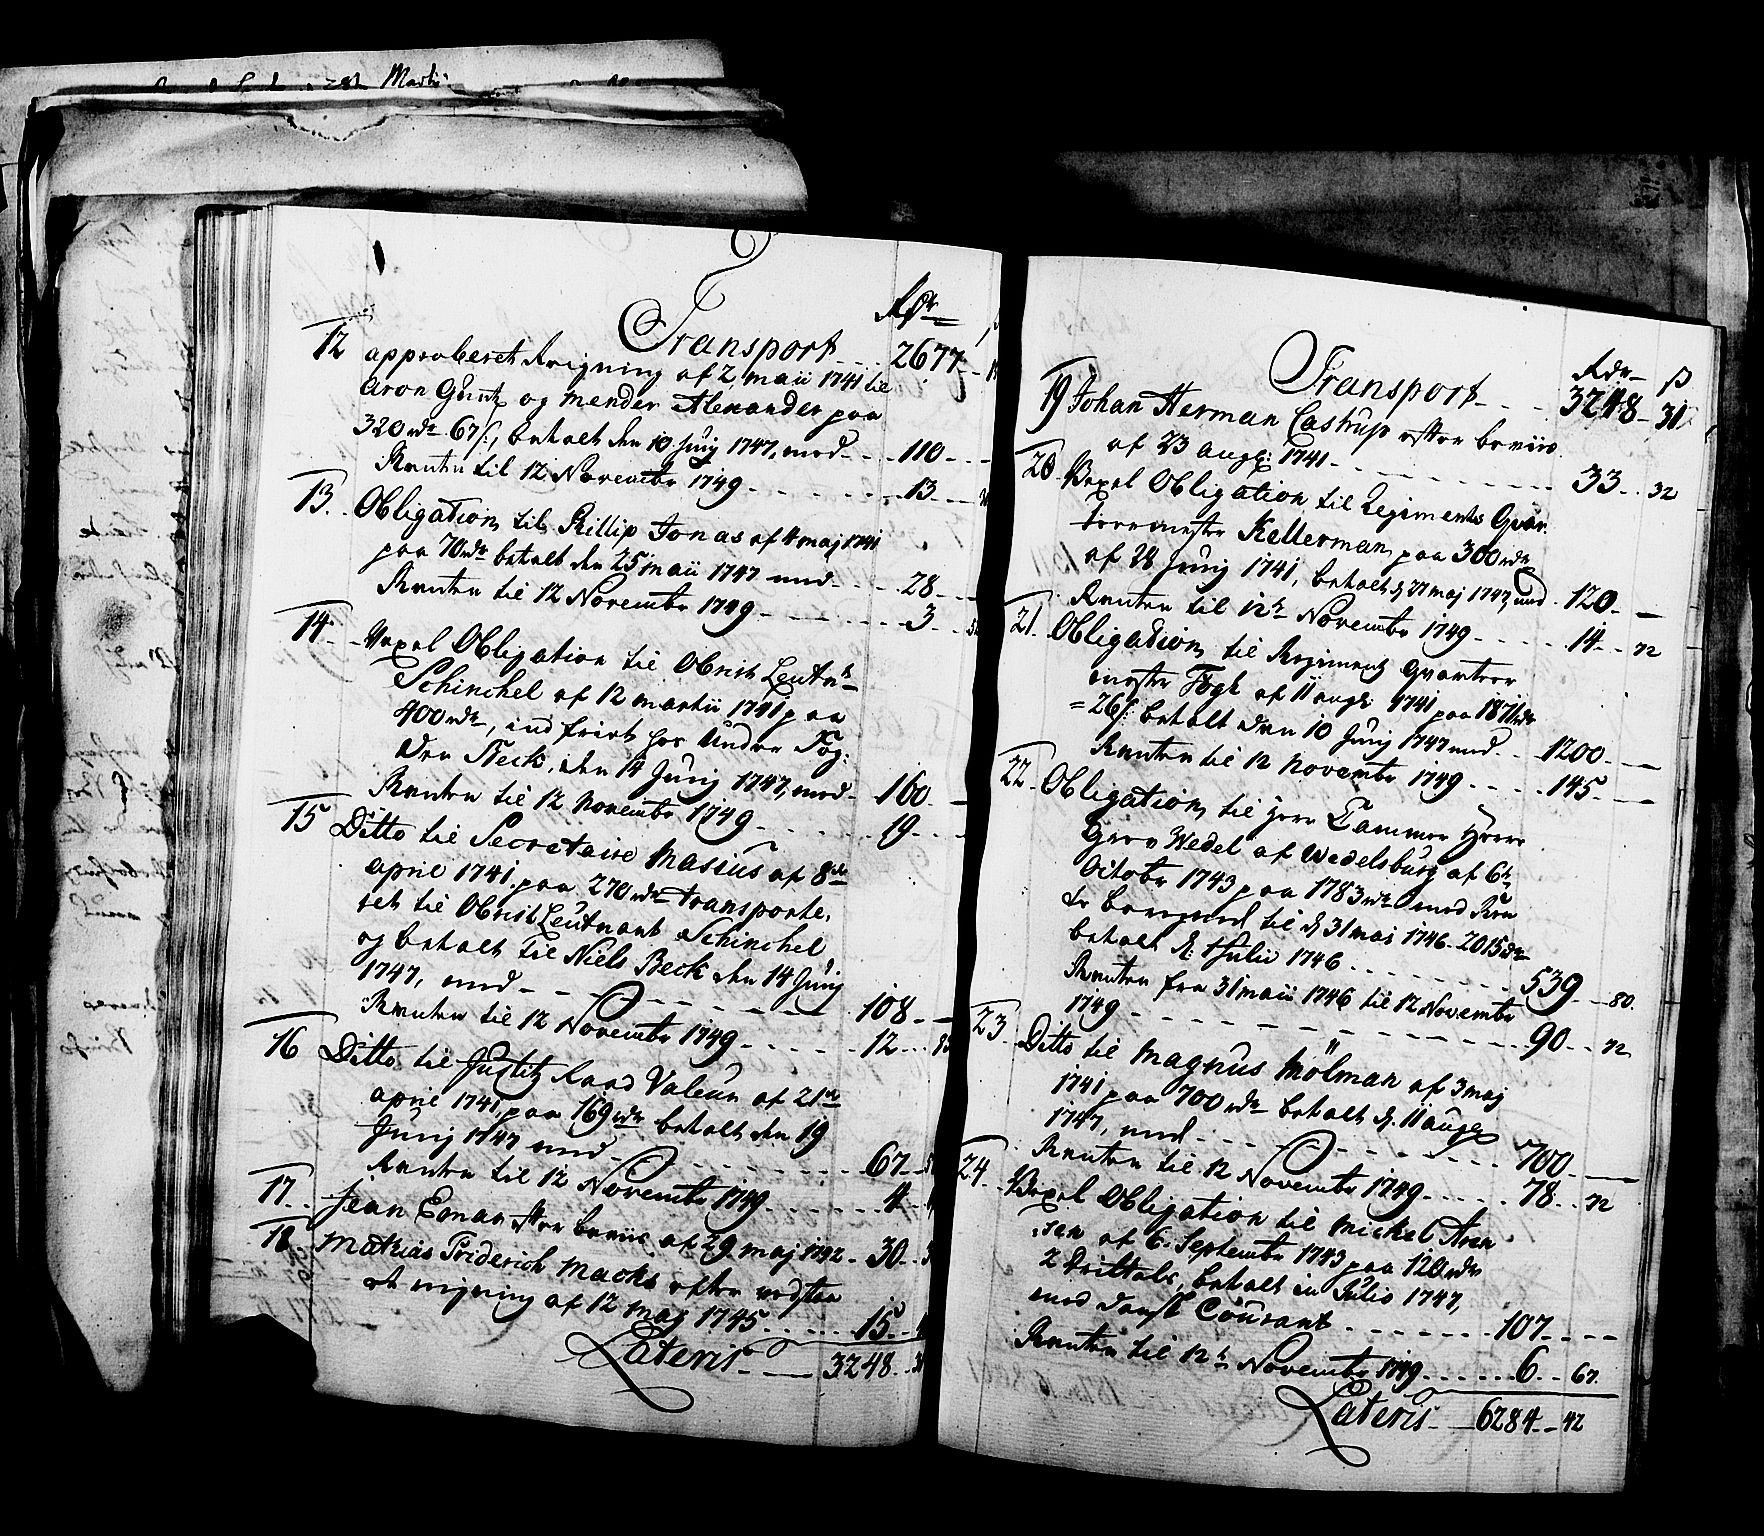 Rdr
Transport 2677
12 approberet Reigning af 2 maii 1741 til
Aron Guntz og Mender Alexander paa
320 rdr 67 ß, betalt den 10 Junij 1747, med 110
Renten til 12 Novembr 1749 13
13. Obligation til Phillip Jonas af 4 maj 1741
paa 70 rdr betalt den 25 maii 1747 med 28
Renten til 12 Novembr 1749 3
14 Vexel Obligation til Obrist Leutnt
Schinchel af 12 martii 1741 paa
400 rdr, indfriet hos Under Fog-
den Beck, den 14 Junij 1747, med 160
Renten til 12 November 1749 19
15 Ditto til Secretaire Masius af 8de
april 1741 paa 270 rdr transporte-
ret til Obrist Leutnant Schinchel
og betalt til Niels Beck den 14 Junij
1747, med 108
Renten til 12 Novembr 1749 12
16 Ditto til Justitz Raad Valeur af 21de
april 1741, paa 169 rdr betalt den 19
Junij 1747 med 67
Renten til 12 Novembr 1749 4
17. Jean Eman efter beviis af 29 maj 1742 30
18 Mathias Friderich Macks efter
et reigning af 12 maj 1745 15
Lateris 3248
Rdr ß
Transport 3248 31
19 Johan Herman Castrup efter beviis
af 23 aug: 1741 33 32
20 Vexel Obligation til Regiments Qvar-
teermester Kellerman paa 300 rdr
af 28 Junij 1741, betalt d 27 maj 1747 med 120
Renten til 12te Novembr 1749 14 72
21 Obligation til Regiments Qvarteer
mester Fogh af 11 aug: 1741 paa 1871 rdr
26 ß betalt den 10 Junij 1747 med 1200
Renten til 12 November 1749 145
22 Obligation til Herr Cammer Herre
Wedel af Wedelsburg af 6te
Octobr 1743 paa 1783 rdr med Ren-
te beregned til d 31 maj 1746 2015 rdr
betalt d: 1 Julii 1746 539 80
Renten fra 31 maii 1746 til 12 Novembr
1749 90 72
23 Ditto til Magnus Mölman af 3 maj
1741 paa 700 rdr betalt d. 11 aug
1747, med 700
Renten til 12 Novembr 1749 78 72
24 Vexel Obligation til Michel Aren-
sen af 6. Septembr 1743 paa 120 rdr
2 Drittels, betalt in Julio 1747,
med dansk Courant 107
Renten til 12te Novembr 1749 6 67
Lateris 6284 42